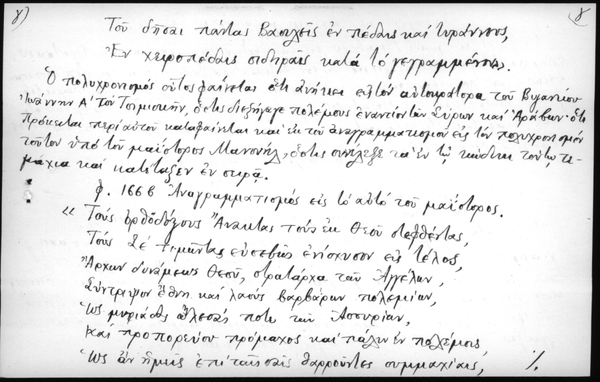 γ) γ
Τοῦ δῆσαι πάντας Βασιλεῖς ἐν πέδαις καὶ τυράννους,
Ἐν χειροπέδαις σιδηραῖς κατὰ τὸ γεγραμμένον.
Ὁ πολυχρονισμός οὗτος φαίνεται ὅτι ἀνήκει εἰς τὸν αὐτοκράτορα τοῦ Βυζαντίου
Ἰωάννην Α' τὸν Τσιμισκῆν, ὅστις διεξήγαγε πολέμους ἐναντίον τῶν Σύρων καὶ Ἀράβων· ὅτι
πρόκειται περὶ αὐτοῦ καταφαίνεται καὶ ἐκ τοῦ ἀναγραμματισμοῦ εἰς τὸν πολυχρονισμόν
τοῦτον ὑπὸ τοῦ μαΐστορος Μανουήλ, ὅστις συνέλεξε τὰ ἐν τῷ κώδικι τούτῳ τε-
μάχια καὶ κατέταξεν ἐν σειρᾷ.
φ. 166β Ἀναγραμματισμὸς εἰς τὸ αὐτὸ τοῦ μαΐστορος.
« Τοὺς ὀρθοδόξους Ἄνακτας τοὺς ἐκ Θεοῦ στεφθέντας,
Τοὺς Σὲ τιμῶντας εὐσεβῶς ἐνίσχυσον εἰς τέλος,
Ἄρχων δυνάμεως Θεοῦ, στρατάρχα τῶν Ἀγγέλων,
Σύντριψον ἔθνη καὶ λαοὺς βαρβάρων πολεμίων,
Ὡς μυριάδας ὤλεσας ποτὲ τῶν Ἀσσυρίων,
Καὶ προπορεύου πρόμαχος καὶ πάλιν ἐν πολέμοις,
Ὡς ἂν ἡμεῖς ἐπὶ ταῖς σαῖς θαρροῦντες συμμαχίαις, ./.